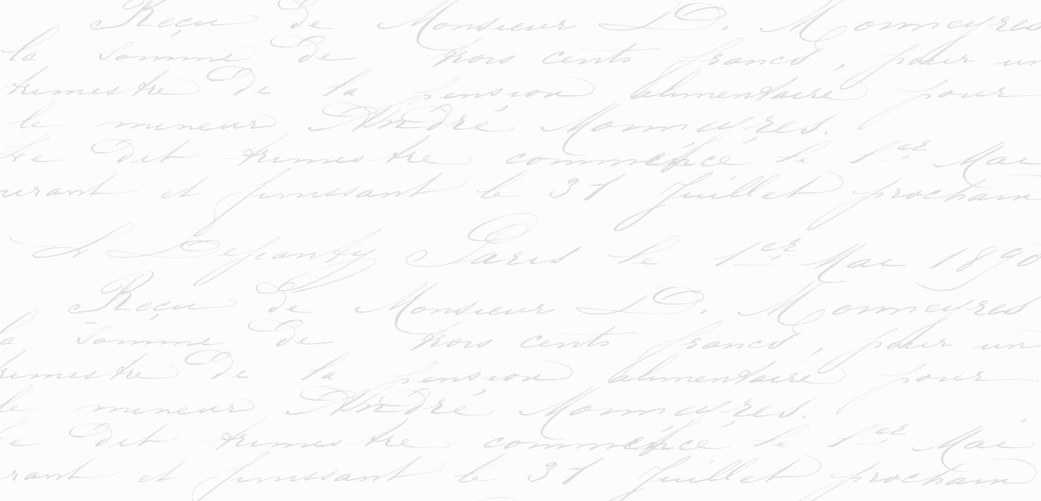 Reçu de Monsieur D. Monneyres
la somme de trois cents francs, pour un
trimestre de la pension alimentaire pour
le mineur André Monneyres.
Le dit trimestre commencé le 1er Mai
courant et finissant le 31 Juillet prochain
Paris le 1er Mai 1890
Reçu de Monsieur D. Monneyres
la somme de trois cents francs, pour un
trimestre de la pension alimentaire pour
le mineur André Monneyres.
Le dit trimestre commencé le 1er Mai
rant et finissant le 31 Juillet prochain